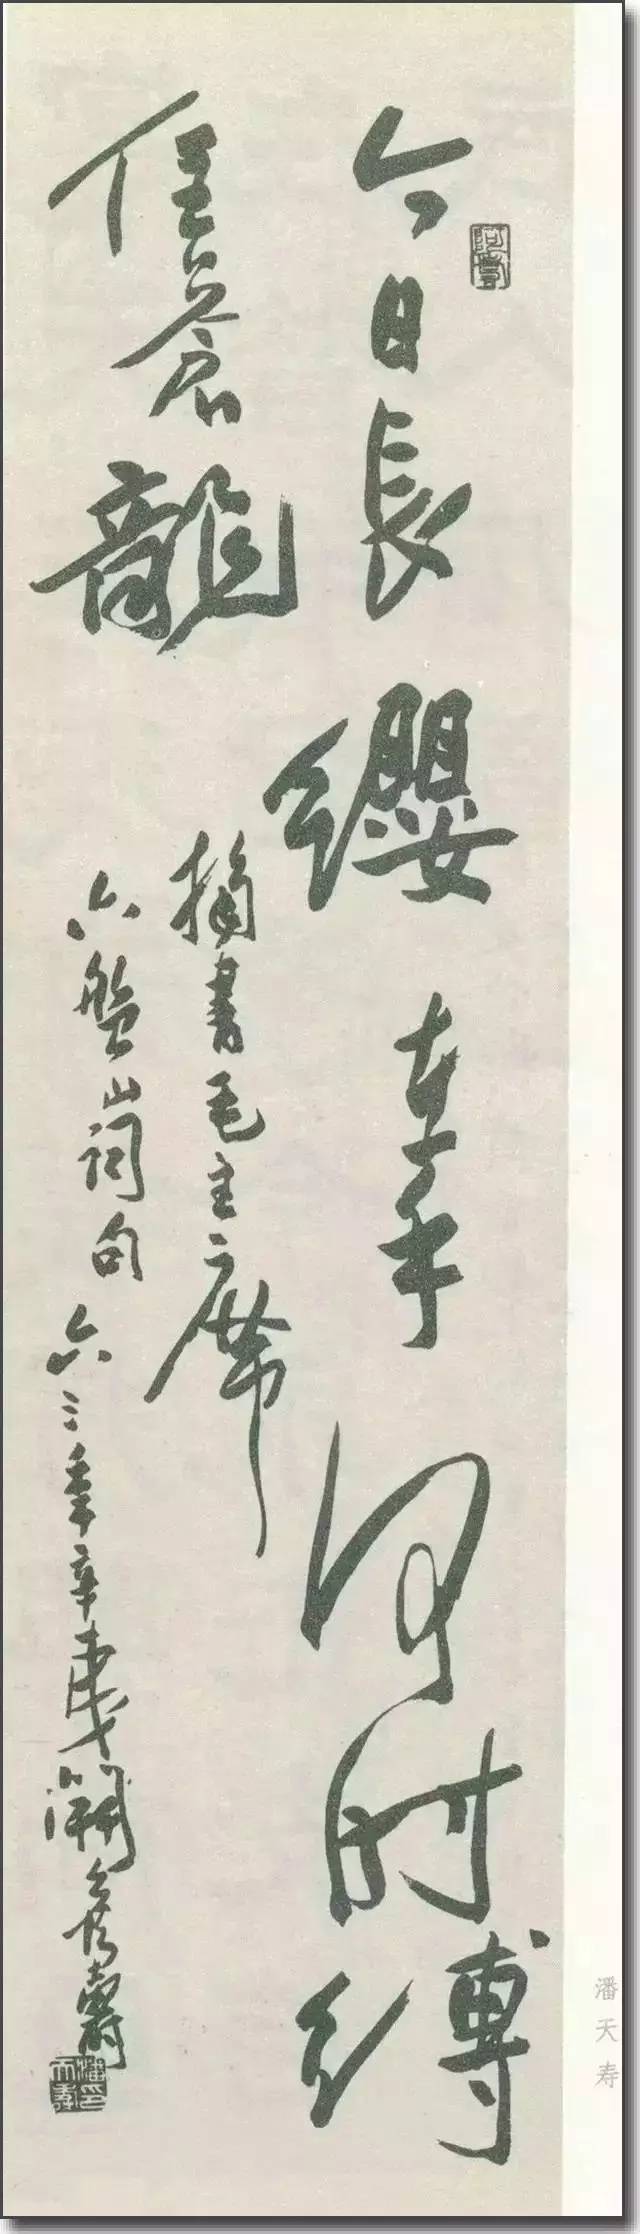 阿壽
今日長纓在手何时縛
住蒼龍
摘書毛主席
六盤山詞句 六三年辛夷開 壽
潘天壽印
潘天寿